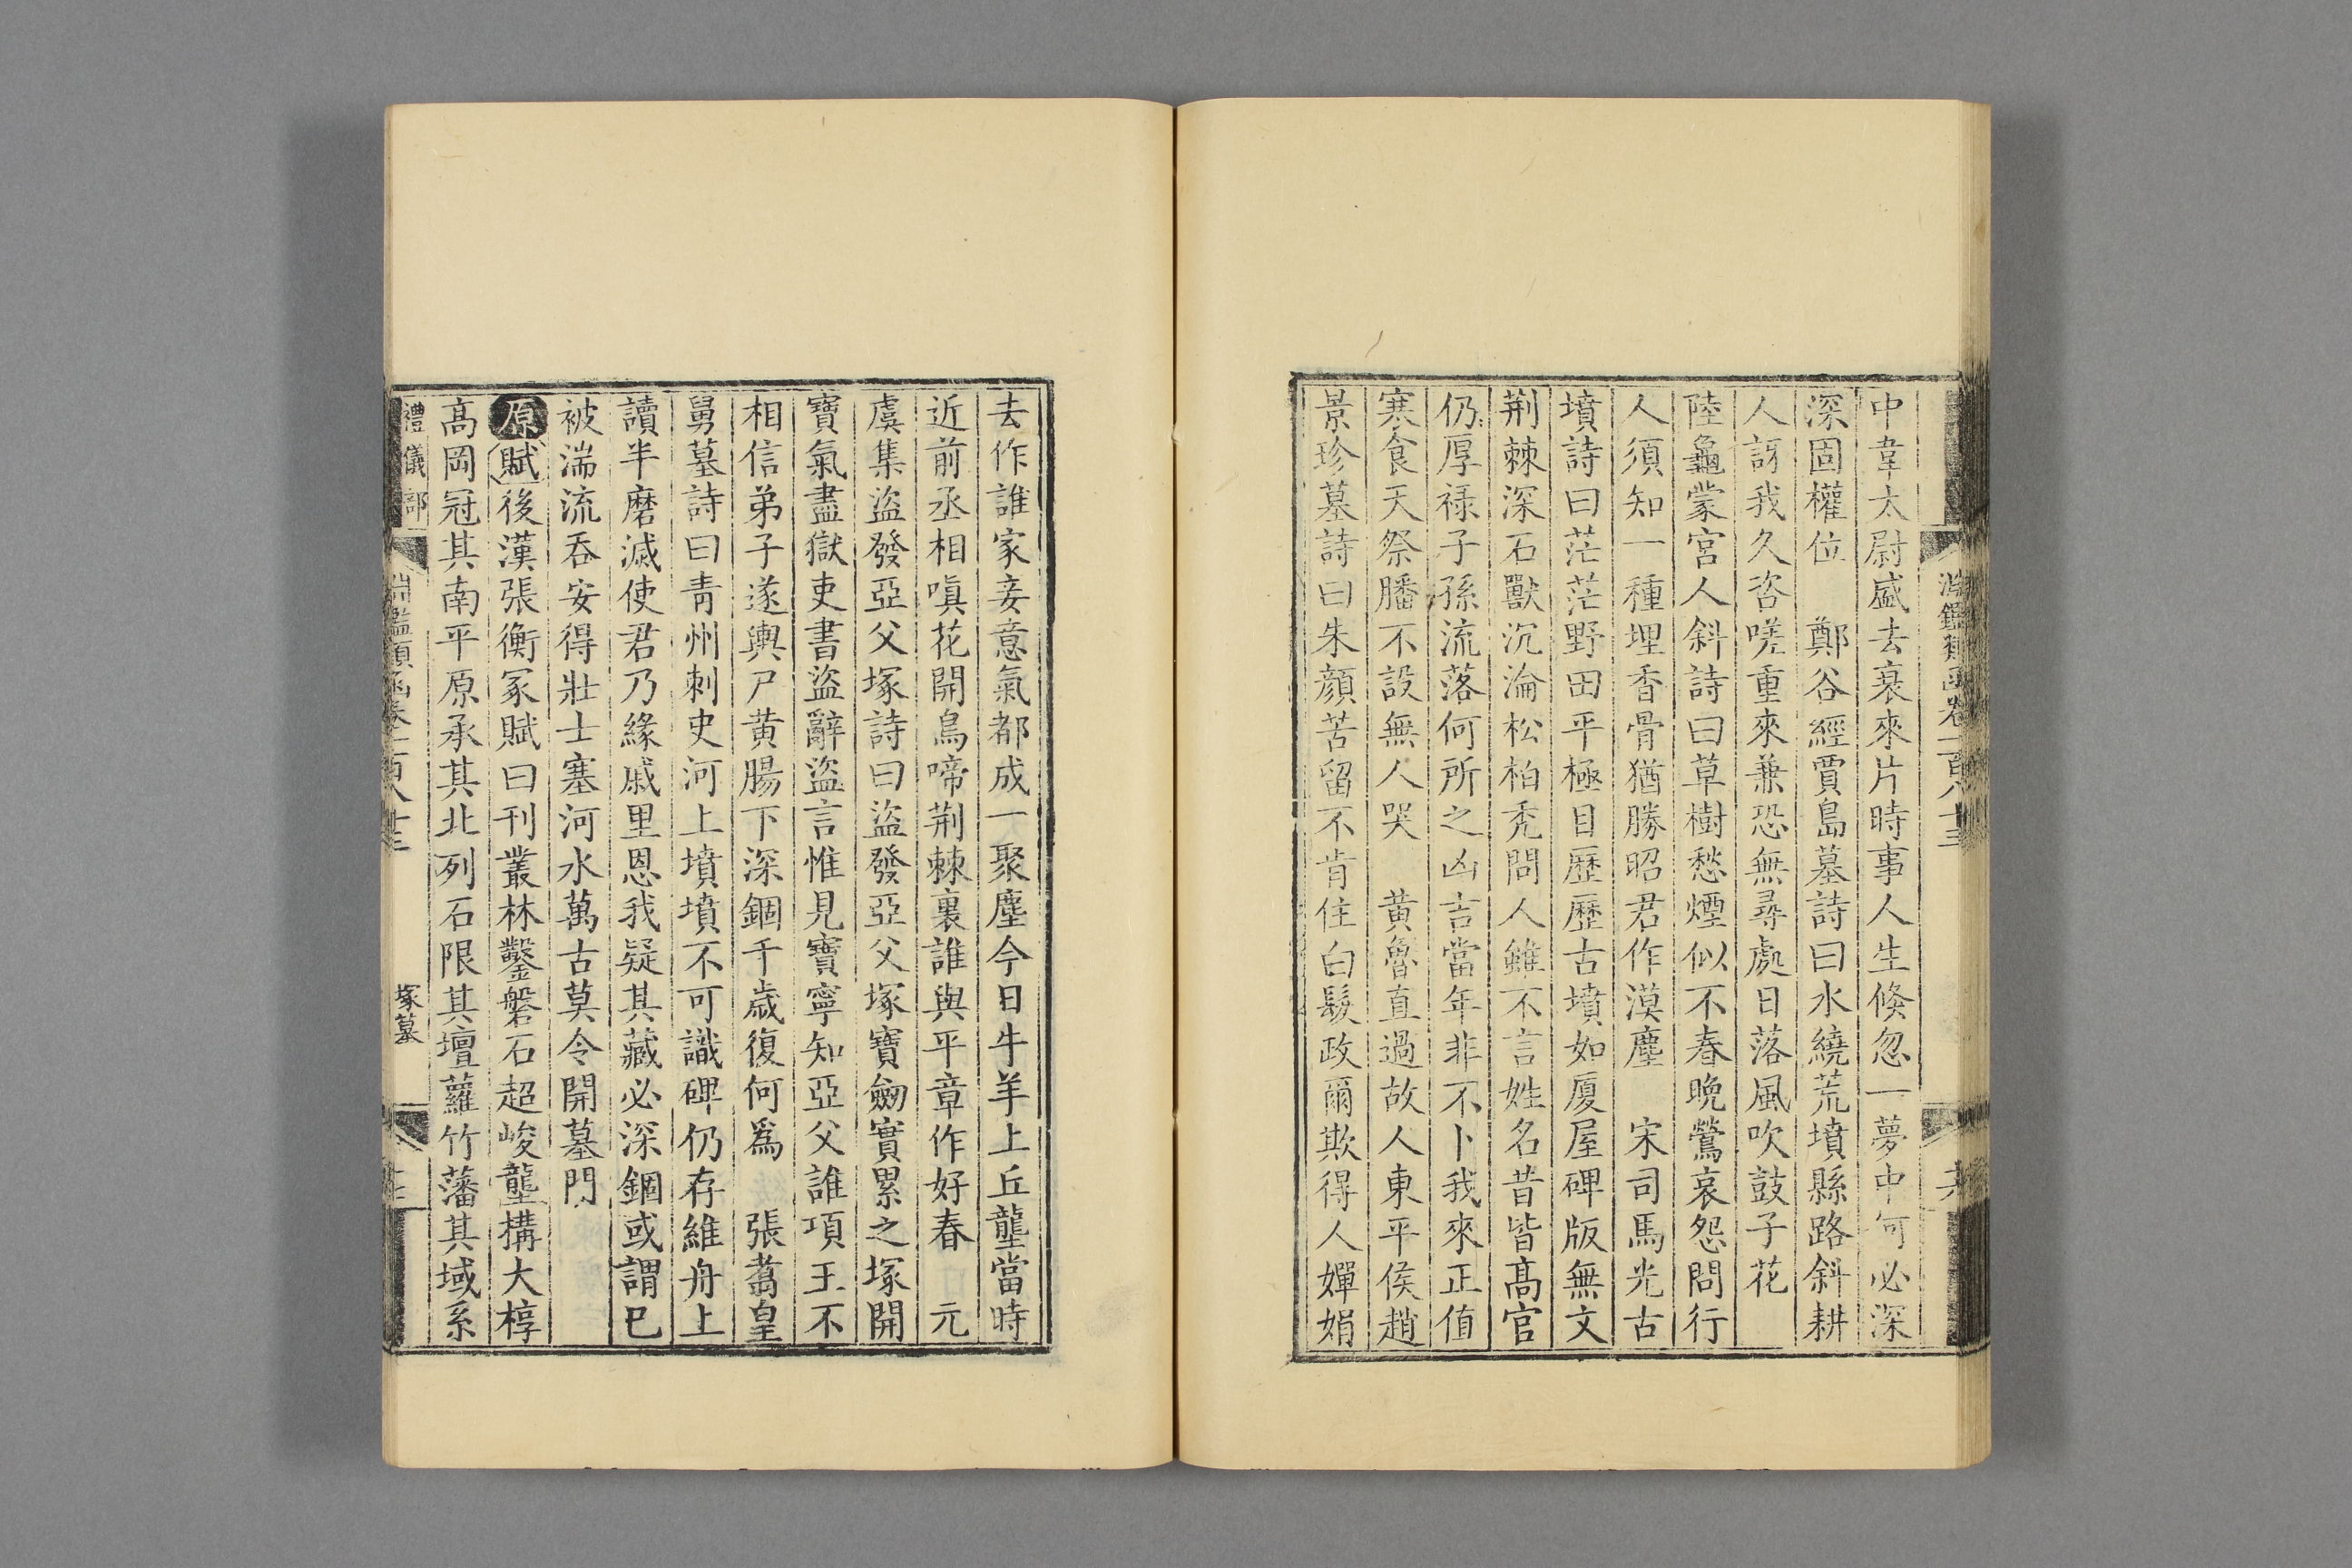 淵鑑類函卷一百八十三
中韋太尉盛去衰來片時事人生倏忽一夢中何必深
深固權位　鄭谷經賈島墓詩曰水繞荒墳縣路斜耕
人訝我久咨嗟重來兼恐無尋處日落風吹鼓子花
陸龜蒙宮人斜詩曰草樹愁煙似不春晚鶯哀怨問行
人須知一種埋香骨猶勝昭君作漠塵　宋司馬光古
墳詩曰茫茫野田平極目歷歷古墳如廈屋碑版無文
荆棘深石獸沉淪松柏禿問人雖不言姓名昔皆髙官
仍厚祿子孫流落何所之凶吉當年非不卜我來正值
寒食天祭膰不設無人哭　黄魯直過故人東平侯趙
景珍墓詩曰朱顔苦留不肯住白髮政爾欺得人嬋娟
去作誰家妾意氣都成一聚塵今日牛羊上丘壟當時
近前丞相嗔花開鳥啼荆棘裏誰與平章作好春　元
虞集盜發亞父塚詩曰盜發亞父塚寶劒實累之塚開
寶氣盡獄吏書盜辭盜言惟見寶寧知亞父誰項王不
相信弟子遂輿尸黄腸下深錮千歲復何爲　張翥皇
舅墓詩曰靑州刺史河上墳墳不可識碑仍存維舟上
讀半磨滅使君乃緣戚里恩我疑其藏必深錮或謂已
被湍流吞安得壯士塞河水萬古莫令開墓門
原賦後漢張衡冢賦曰刊叢林鑿磐石超峻壟構大椁
髙岡冠其南平原承其北列石限其壇蘿竹藩其域系
禮儀部
淵鑑類函卷一百八十三
塚墓